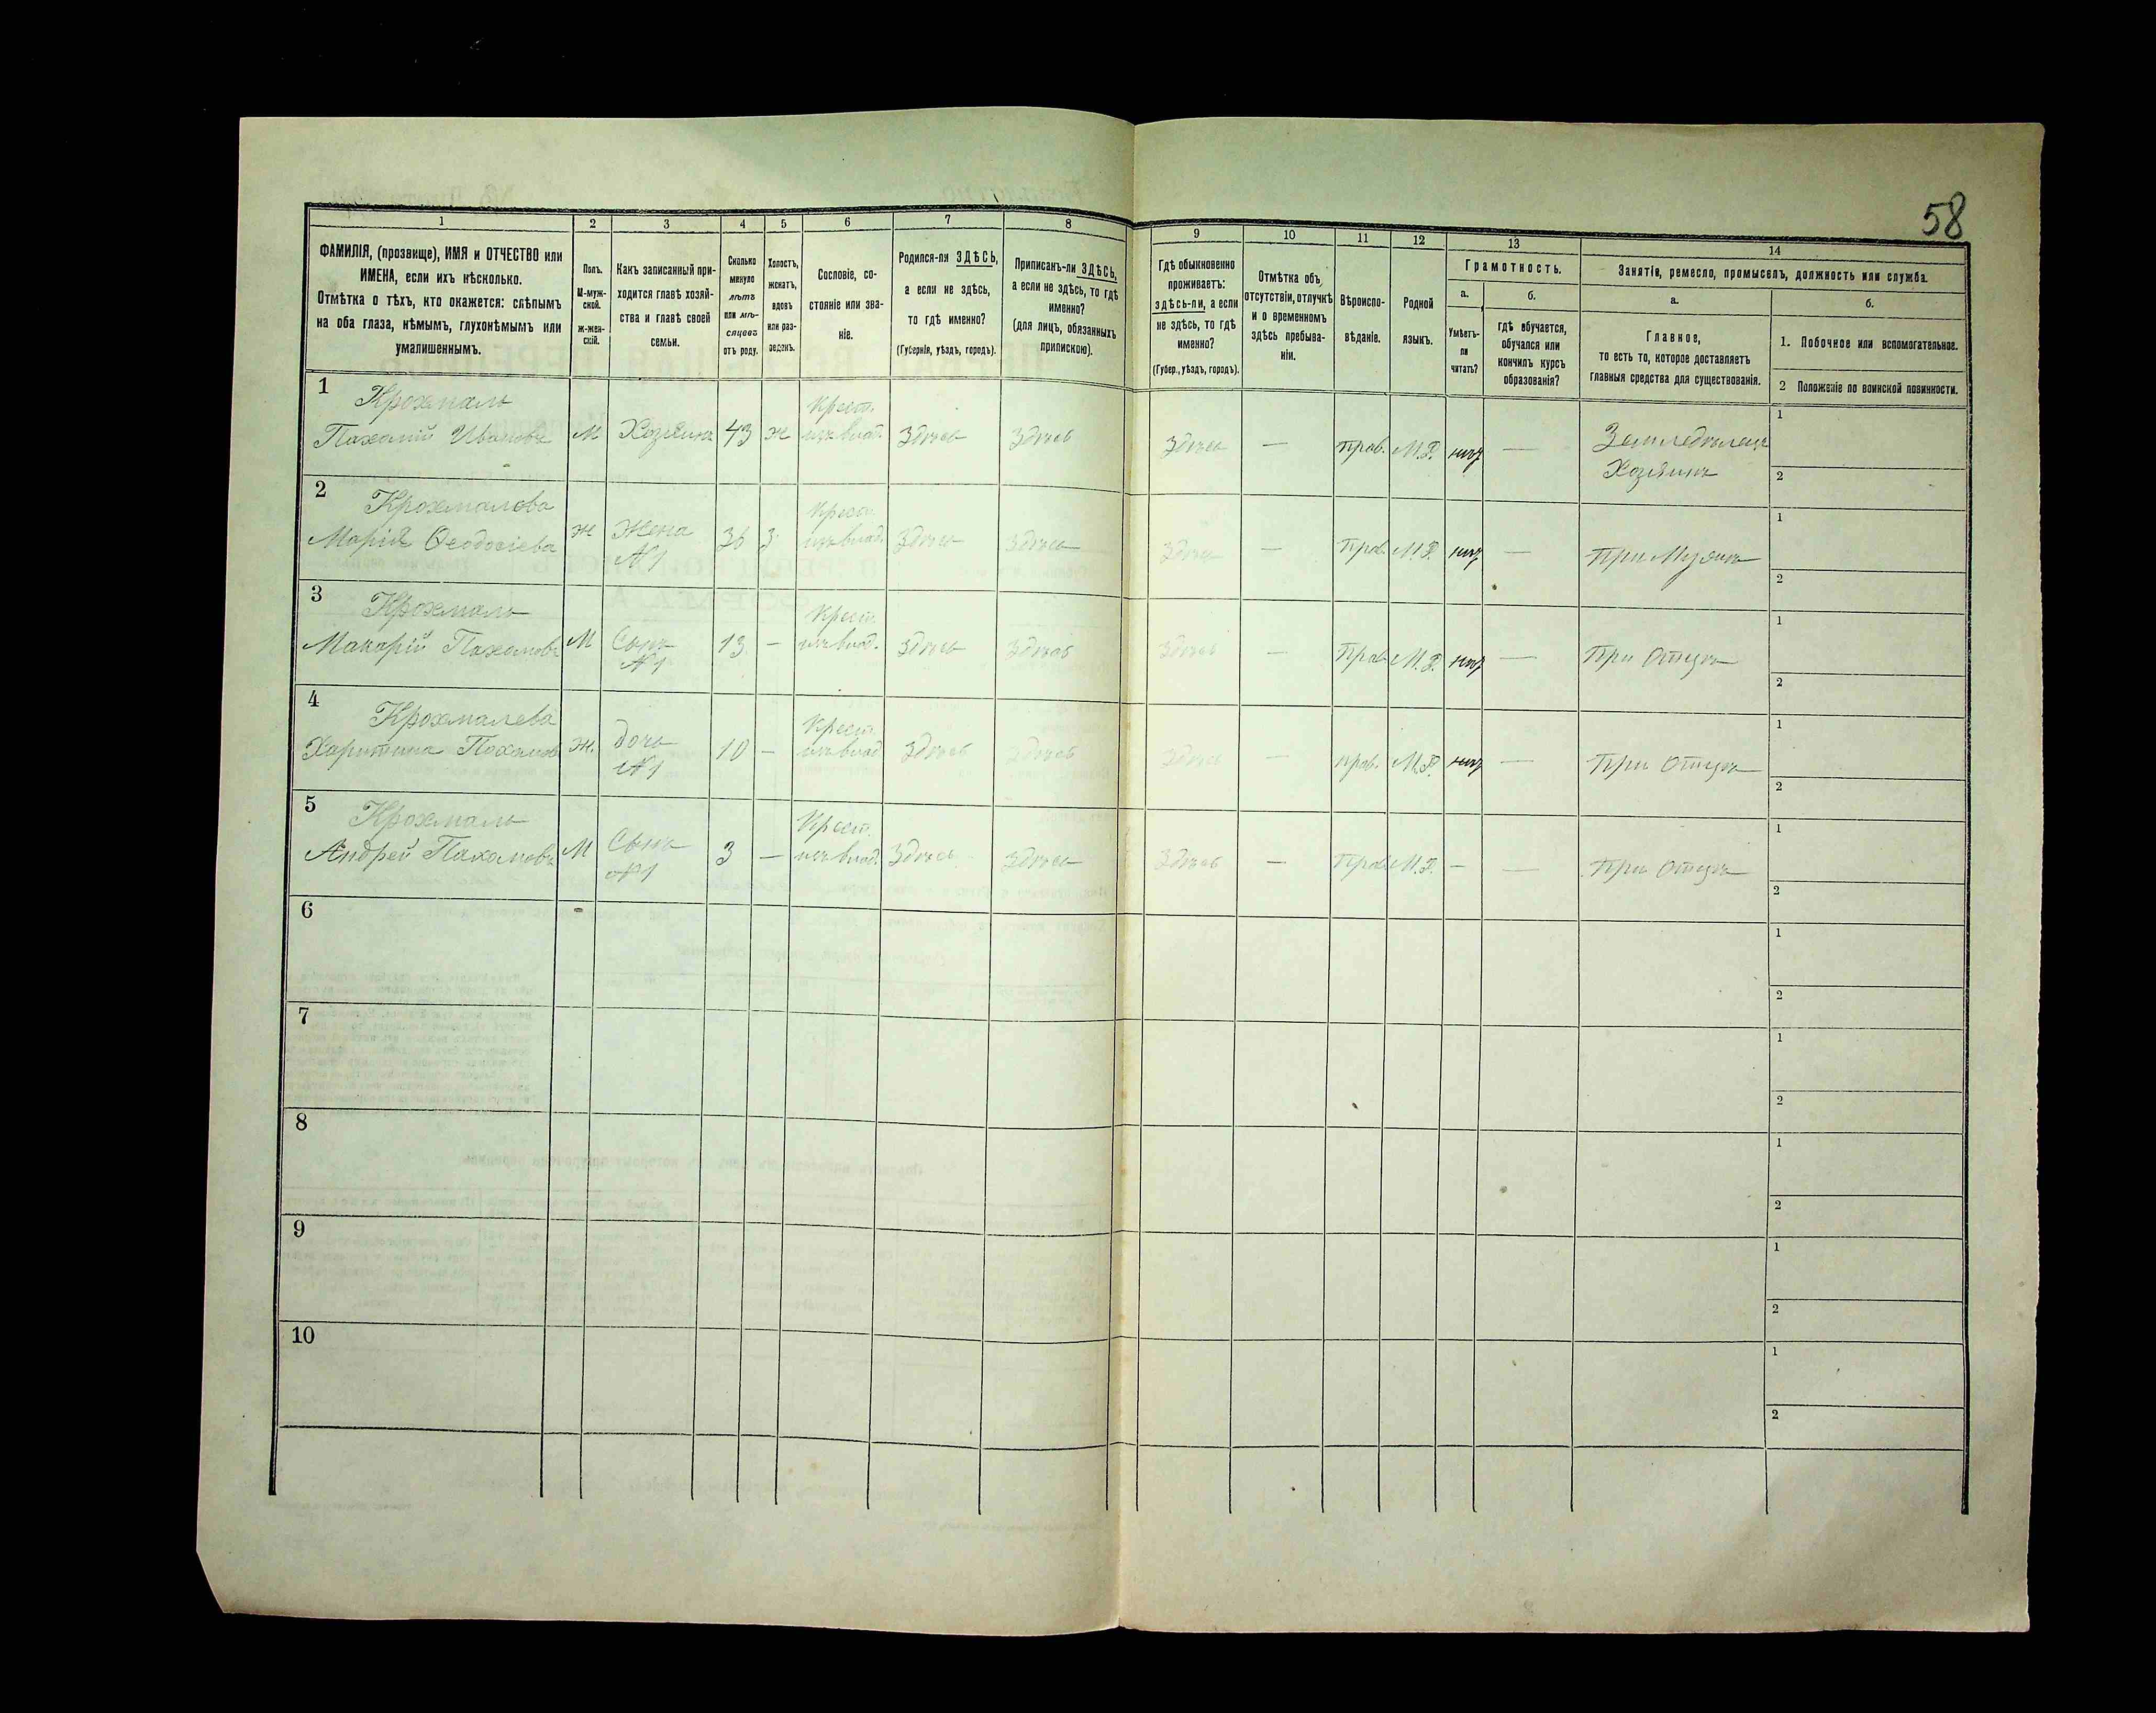 58
1 2 3 4 5 6 7 8 9 10 11 12 13 14
ФАМИЛІЯ, (прозвище), ИМЯ и ОТЧЕСТВО или
ИМЕНА, если ихъ нѣсколько.
Отмѣтка о тѣхъ, кто окажется: слѣпымъ
на оба глаза, нѣмымъ, глухонѣмымъ или
умалишеннымъ.
Полъ.
М-муж-
ской.
ж-жен-
скій.
Какъ записанный при-
ходится главѣ хозяй-
ства и главѣ своей
семьи.
Сколько
минуло
лѣтъ
или мѣ-
сяцевъ
отъ роду.
Холостъ,
женатъ,
вдовъ
или раз-
веденъ.
Сословіе, со-
стояніе или зва-
ніе.
Родился-ли ЗДѢСЬ,
а если не здѣсь,
то гдѣ именно?
(Губернія, уѣздъ, городъ).
Приписанъ-ли ЗДѢСЬ,
а если не здѣсь, то гдѣ
именно?
(для лицъ, обязанныхъ
припискою).
Гдѣ обыкновенно
проживаетъ:
здѣсь-ли, а если
не здѣсь, то гдѣ
именно?
(Губер., уѣздъ, городъ).
Отмѣтка объ
отсутствіи, отлучкѣ
и о временномъ
здѣсь пребыва-
ніи.
Вѣроиспо-
вѣданіе.
Родной
языкъ.
Грамотность.
а.
Умѣетъ-
ли
читать?
б.
гдѣ обучается,
обучался или
кончилъ курсъ
образованія?
Занятіе, ремесло, промыселъ, должность или служба.
а.
Главное,
то есть то, которое доставляетъ
главныя средства для существованія.
б.
1. Побочное или вспомогательное.
2 Положеніе по воинской повинности.
1 Крохмаль
Пахомій Ивановъ М Хозяинъ 43 ж Крест. изъ влад. Здѣсь Здѣсь Здѣсь — прав. М.Р. нѣтъ — Земледѣлецъ 1
Хозяинъ 2
2 Крохмалева
Марія Ѳеодосіева ж Жена 36 з. Крест. изъ влад. Здѣсь Здѣсь Здѣсь — Прав. М.Р. нѣтъ — При Мужѣ 1
№1 2
3 Крохмаль
Макарій Пахомовъ М Сынъ 13 — Крест. изъ влад. Здѣсь Здѣсь Здѣсь — Прав. М.Р. нѣтъ — При Отцѣ 1
№1 2
4 Крохмалева
Харитина Пахомов ж. дочь 10 — Крест. изъ влад. Здѣсь Здѣсь Здѣсь — прав. М.Р. нѣтъ — При Отцѣ 1
№1 2
5 Крохмаль
Андрей Пахомовъ М Сынъ 3 — Крест. изъ влад. Здѣсь Здѣсь Здѣсь — Прав. М.Р. — — При Отцѣ 1
№1 2
6 1
2
7 1
2
8 1
2
9 1
2
10 1
2